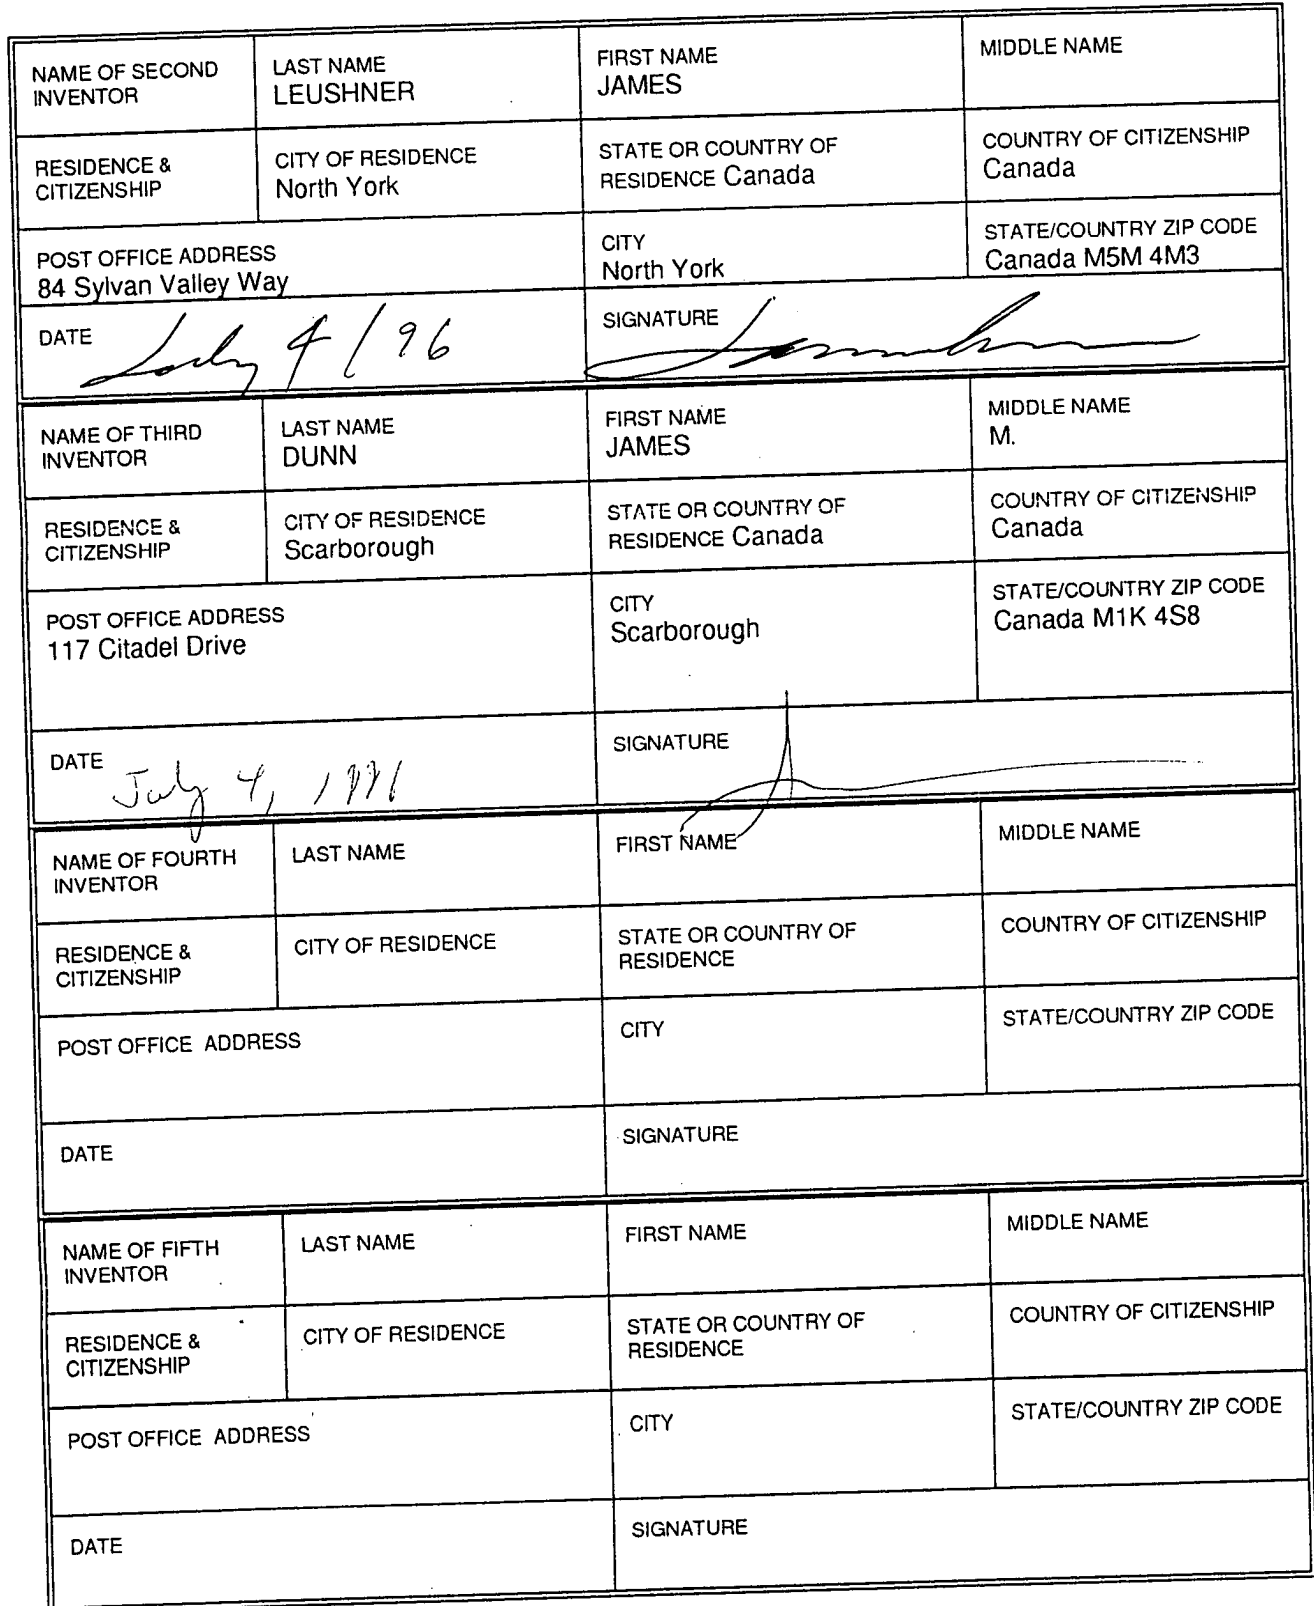 NAME OF SECOND INVENTOR
LAST NAME
LEUSHNER
FIRST NAME
JAMES
MIDDLE NAME
RESIDENCE & CITIZENSHIP
CITY OF RESIDENCE
North York
STATE OR COUNTRY OF
RESIDENCE Canada
COUNTRY OF CITIZENSHIP
Canada
POST OFFICE ADDRESS
84 Sylvan Valley Way
CITY
North York
STATE/COUNTRY ZIP CODE
Canada M5M 4M3
DATE
July 4/96
SIGNATURE
NAME OF THIRD
INVENTOR
LAST NAME
DUNN
FIRST NAME
JAMES
MIDDLE NAME
M.
RESIDENCE &
CITIZENSHIP
CITY OF RESIDENCE
Scarborough
STATE OR COUNTRY OF
RESIDENCE Canada
COUNTRY OF CITIZENSHIP
Canada
POST OFFICE ADDRESS
117 Citadel Drive
CITY
Scarborough
STATE/COUNTRY ZIP CODE
Canada M1K 4S8
DATE
July 4, 
SIGNATURE
NAME OF FOURTH
INVENTOR
LAST NAME
FIRST NAME
MIDDLE NAME
RESIDENCE &
CITIZENSHIP
CITY OF RESIDENCE
STATE OR COUNTRY OF
RESIDENCE
COUNTRY OF CITIZENSHIP
POST OFFICE ADDRESS
CITY
STATE/COUNTRY ZIP CODE
DATE
SIGNATURE
NAME OF FIFTH
INVENTOR
LAST NAME
FIRST NAME
MIDDLE NAME
RESIDENCE &
CITIZENSHIP
CITY OF RESIDENCE
STATE OR COUNTRY OF
RESIDENCE
COUNTRY OF CITIZENSHIP
POST OFFICE ADDRESS
CITY
STATE/COUNTRY ZIP CODE
DATE
SIGNATURE